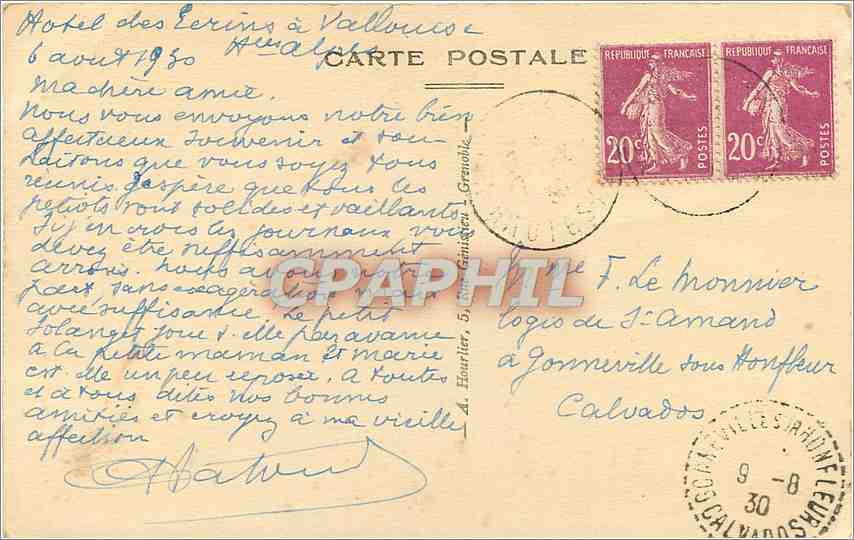 Hotel des Ecrins à Vallouise
Htes alpes
6 aout 1930
CARTE POSTALE
ma chère amie.
nous vous envoyons notre bien
affectueux souvenir et sou-
haitons que vous soyez tous
réunis. J'espère que tous les
petiots sont solides et vaillants
Si j'en crois les journaux vous
devez être suffisamment
arrosés. nous avons notre
part sans exagération mais
avec suffisance. Le petit
Solanget joue t-elle
à la petite maman Et Marie
est-elle un peu reposée. A toutes
et à tous dites nos bonnes
amitiés et croyez à ma vieille
affection
A. Hourlier, 5, Rue Génissieu - Grenoble
REPUBLIQUE FRANÇAISE
20c
POSTES
REPUBLIQUE FRANÇAISE
20c
POSTES
HAUTES
CPAPHIL
Mme F. Le Monnier
logis de St Amand
à Gonneville sous Honfleur
Calvados
GONNEVILLE S/ HONFLEUR
9 -8
30
CALVADOS